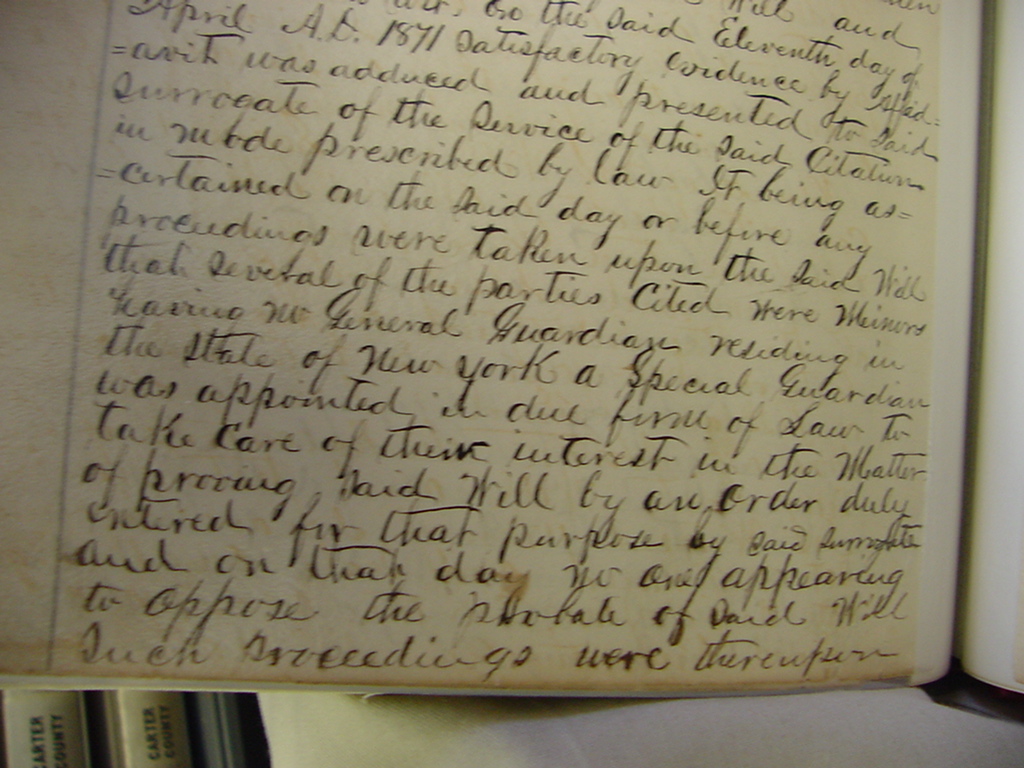 Will and
on the said Eleventh day of
April A.D. 1871 Satisfactory Evidence by Affid=
=avit was adduced and presented to said
Surrogate of the Service of the said Citation
in mode prescribed by law It being as=
=certained on the said day or before any
proceedings were taken upon the said Will
that several of the parties Cited were Minors
having no General Guardian residing in
the State of New York a Special Guardian
was appointed in due form of Law to
take Care of their interest in the Matter
of proving said Will by an Order duly
entered for that purpose by said Surrogate
and on that day no one appearing
to oppose the probate of said Will
Such Proceedings were thereupon
CARTER
COUNTY
CARTER
COUNTY